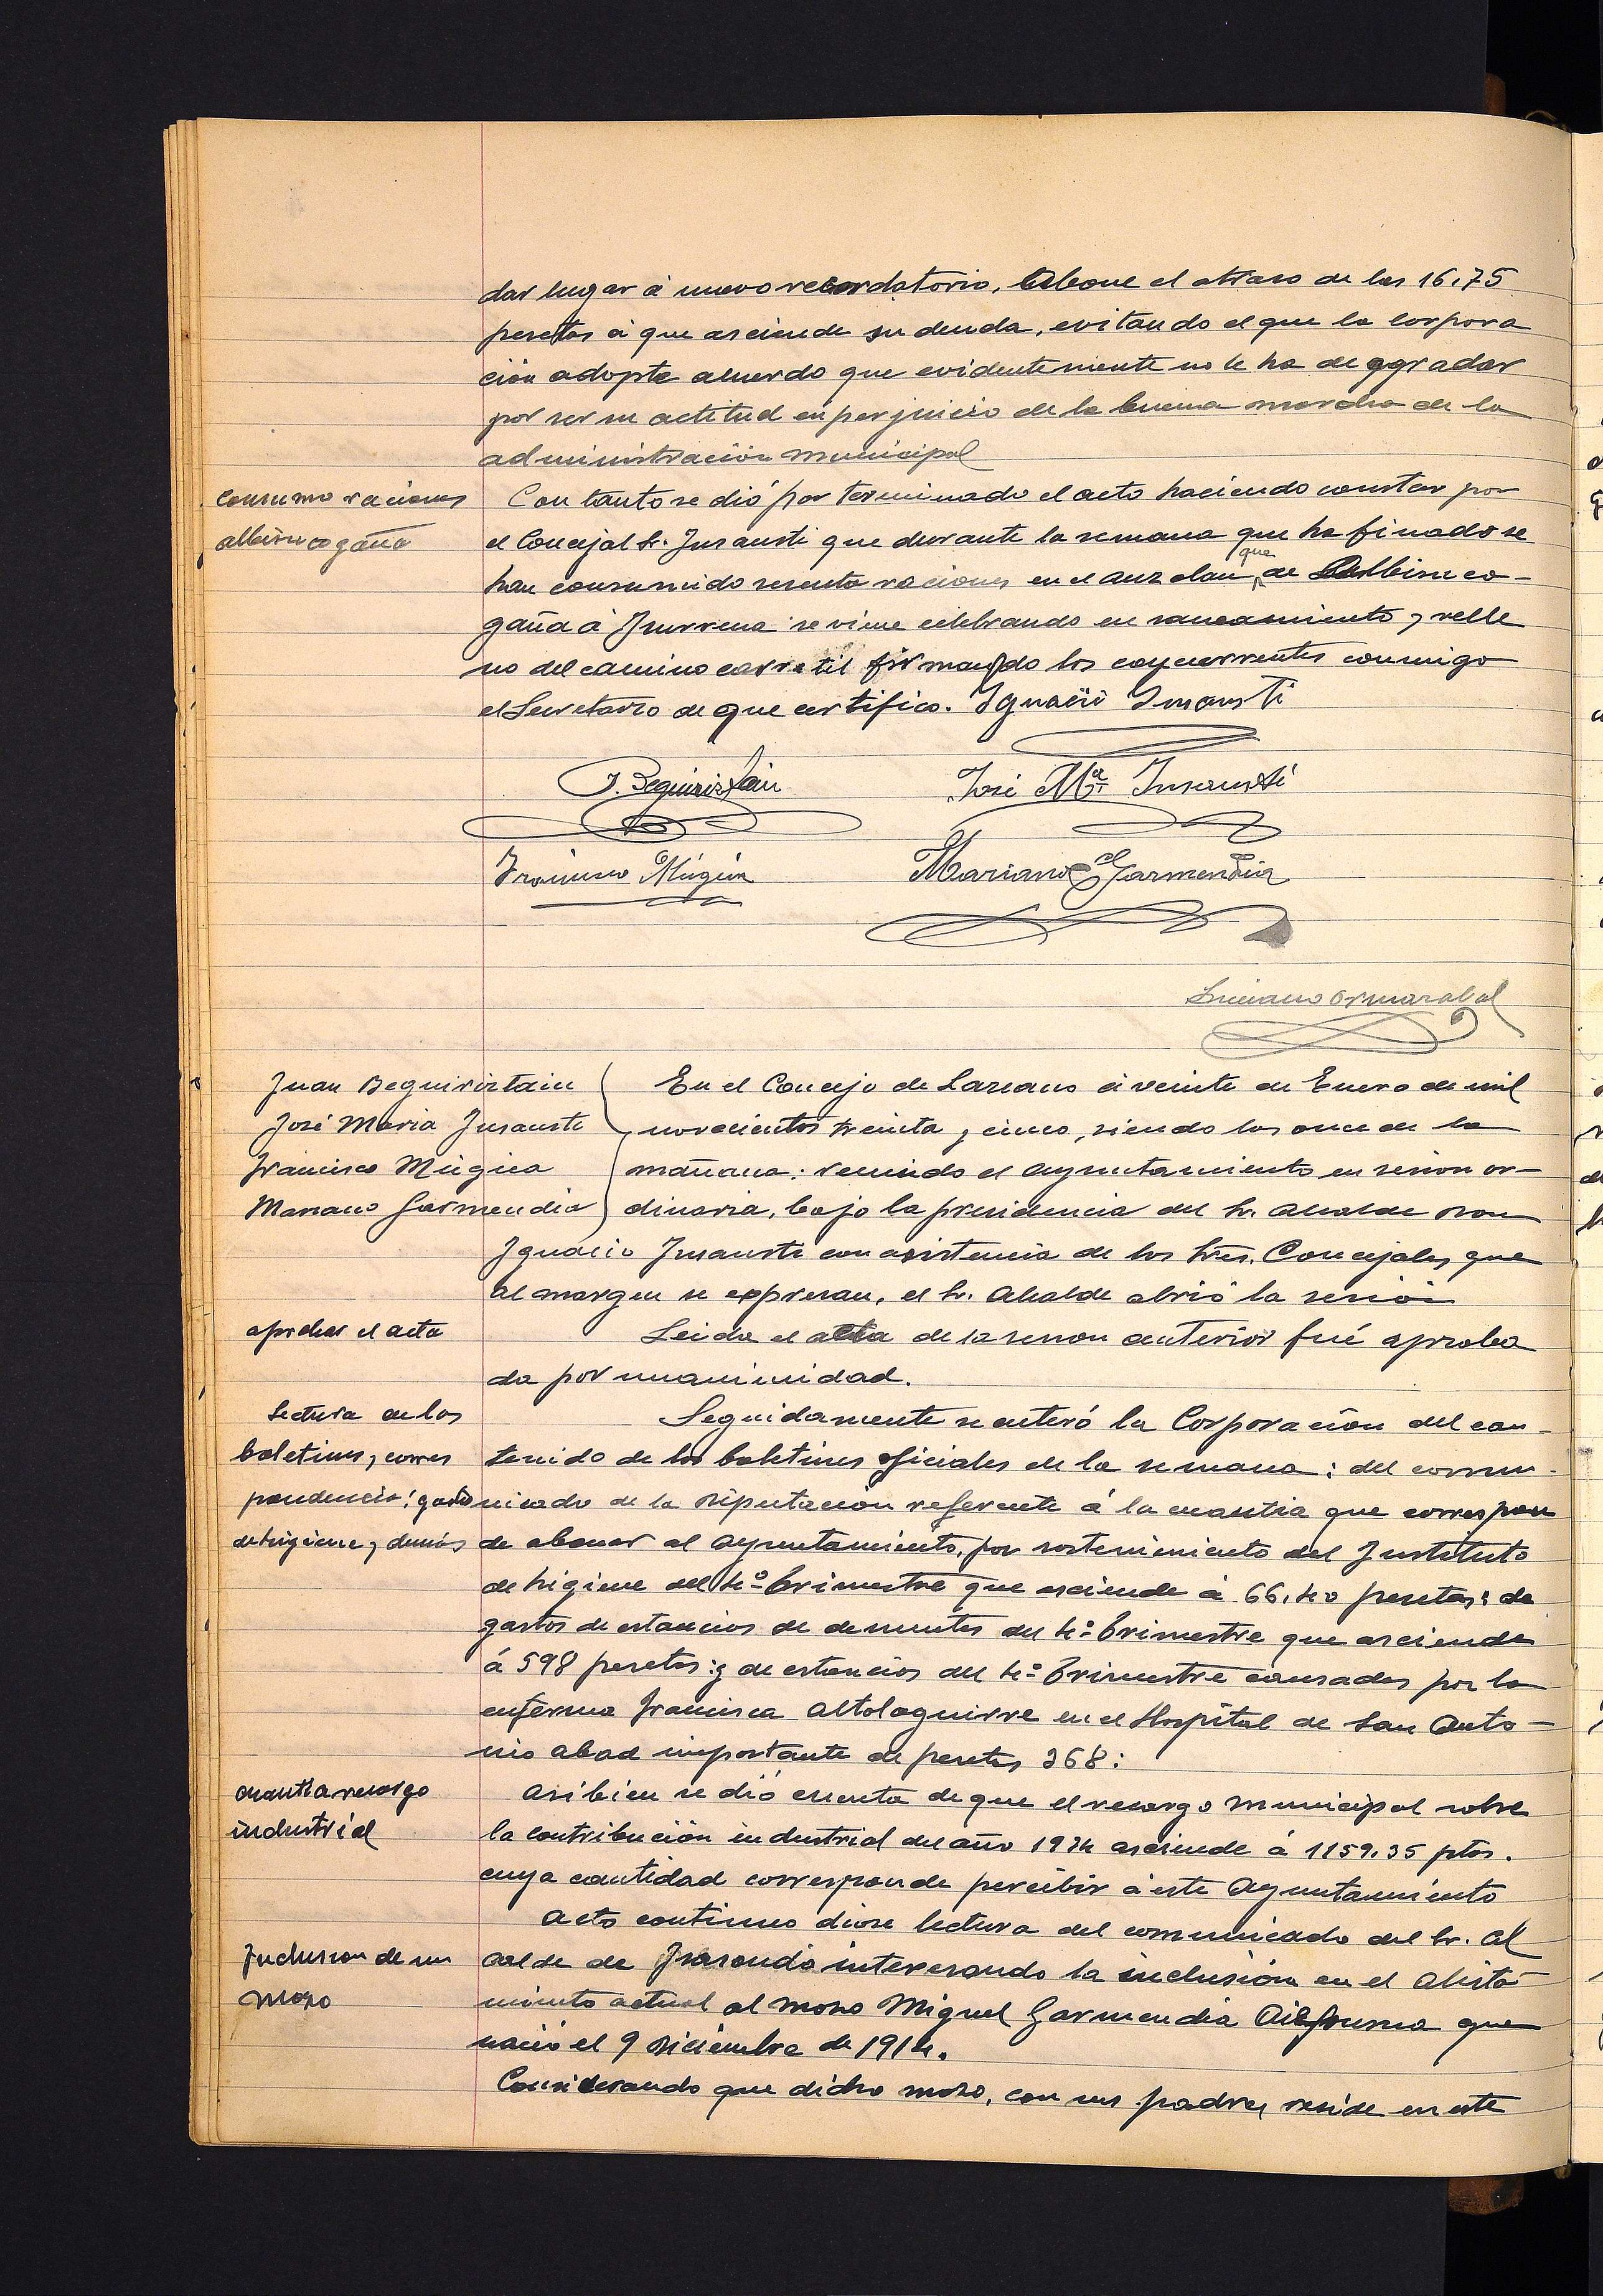 dar lugar á nuevo recordatorio, abone el atraso de las 16,75
pesetas á que asciende su deuda, evitando el que la corpora
ción adopte acuerdo que evidentemente no le ha de agradar
por ser su actitud en perjuicio de la buena marcha de la
administración municipal
consumo raciones
albisucogaña
Con tanto se dió por terminado el acto haciendo constar por
el Concejal Sr. Insausti que durante la semana que ha finado se
han consumido sesenta raciones en el auzolan que de Albisuco-
gaña á Iturrena se viene celebrando en saneamiento y relle
no del camino carretil firmando los concurrentes conmigo
el Secretario de que certifico. Ignacio Insausti
J. Beguiristain
José Mª Insausti
Francisco Múgica
Mariano Garmendia
Luciano Ormazabal
Juan Beguiristain
José Maria Insausti
Francisco Múgica
Mariano Garmendia
En el Concejo de Lazcano á veinte de Enero de mil
novecientos treinta y cinco, siendo las once de la
mañana: reunido el Ayuntamiento en sesion or-
dinaria, bajo la presidencia del Sr. Alcalde Don
Ignacio Insausti con asistencia de los Sres. Concejales que
al margen se expresan, el Sr. Alcalde abrió la sesión
aprobar el acta
Leida el acta de la sesion anterior fué aproba
da por unanimidad.
Lectura de los
boletines y corres
pondencia: gasto
de higiene y demás
Seguidamente se enteró la Corporación del con-
tenido de los boletines oficiales de la semana: del comu-
nicado de la Diputación referente á la cuantia que correspon
de abonar al Ayuntamiento, por sostenimiento del Instituto
de higiene del 4º trimestre que asciende á 66,40 pesetas: de
gastos de estancias de dementes del 4º trimestre que asciende
á 598 pesetas: y de estancias del 4º trimestre causadas por la
enferma Francisca Altolaguirre en el Hospital de San Anto-
nio abad importante de pesetas 368:
cuantia recargo
industrial
Asi bien se dió cuenta de que el recargo municipal sobre
la contribución industrial del año 1934 asciende á 1159,35 ptas.
cuya cantidad corresponde percibir á este Ayuntamiento
Inclusion de un
mozo
Acto continuo dióse lectura del comunicado del Sr. Al
calde de interesando la inclusión en el alista
miento actual al mozo Miguel Garmendia que
nació el 9 Diciembre de 1914.
Considerando que dicho mozo, con sus padres reside en este